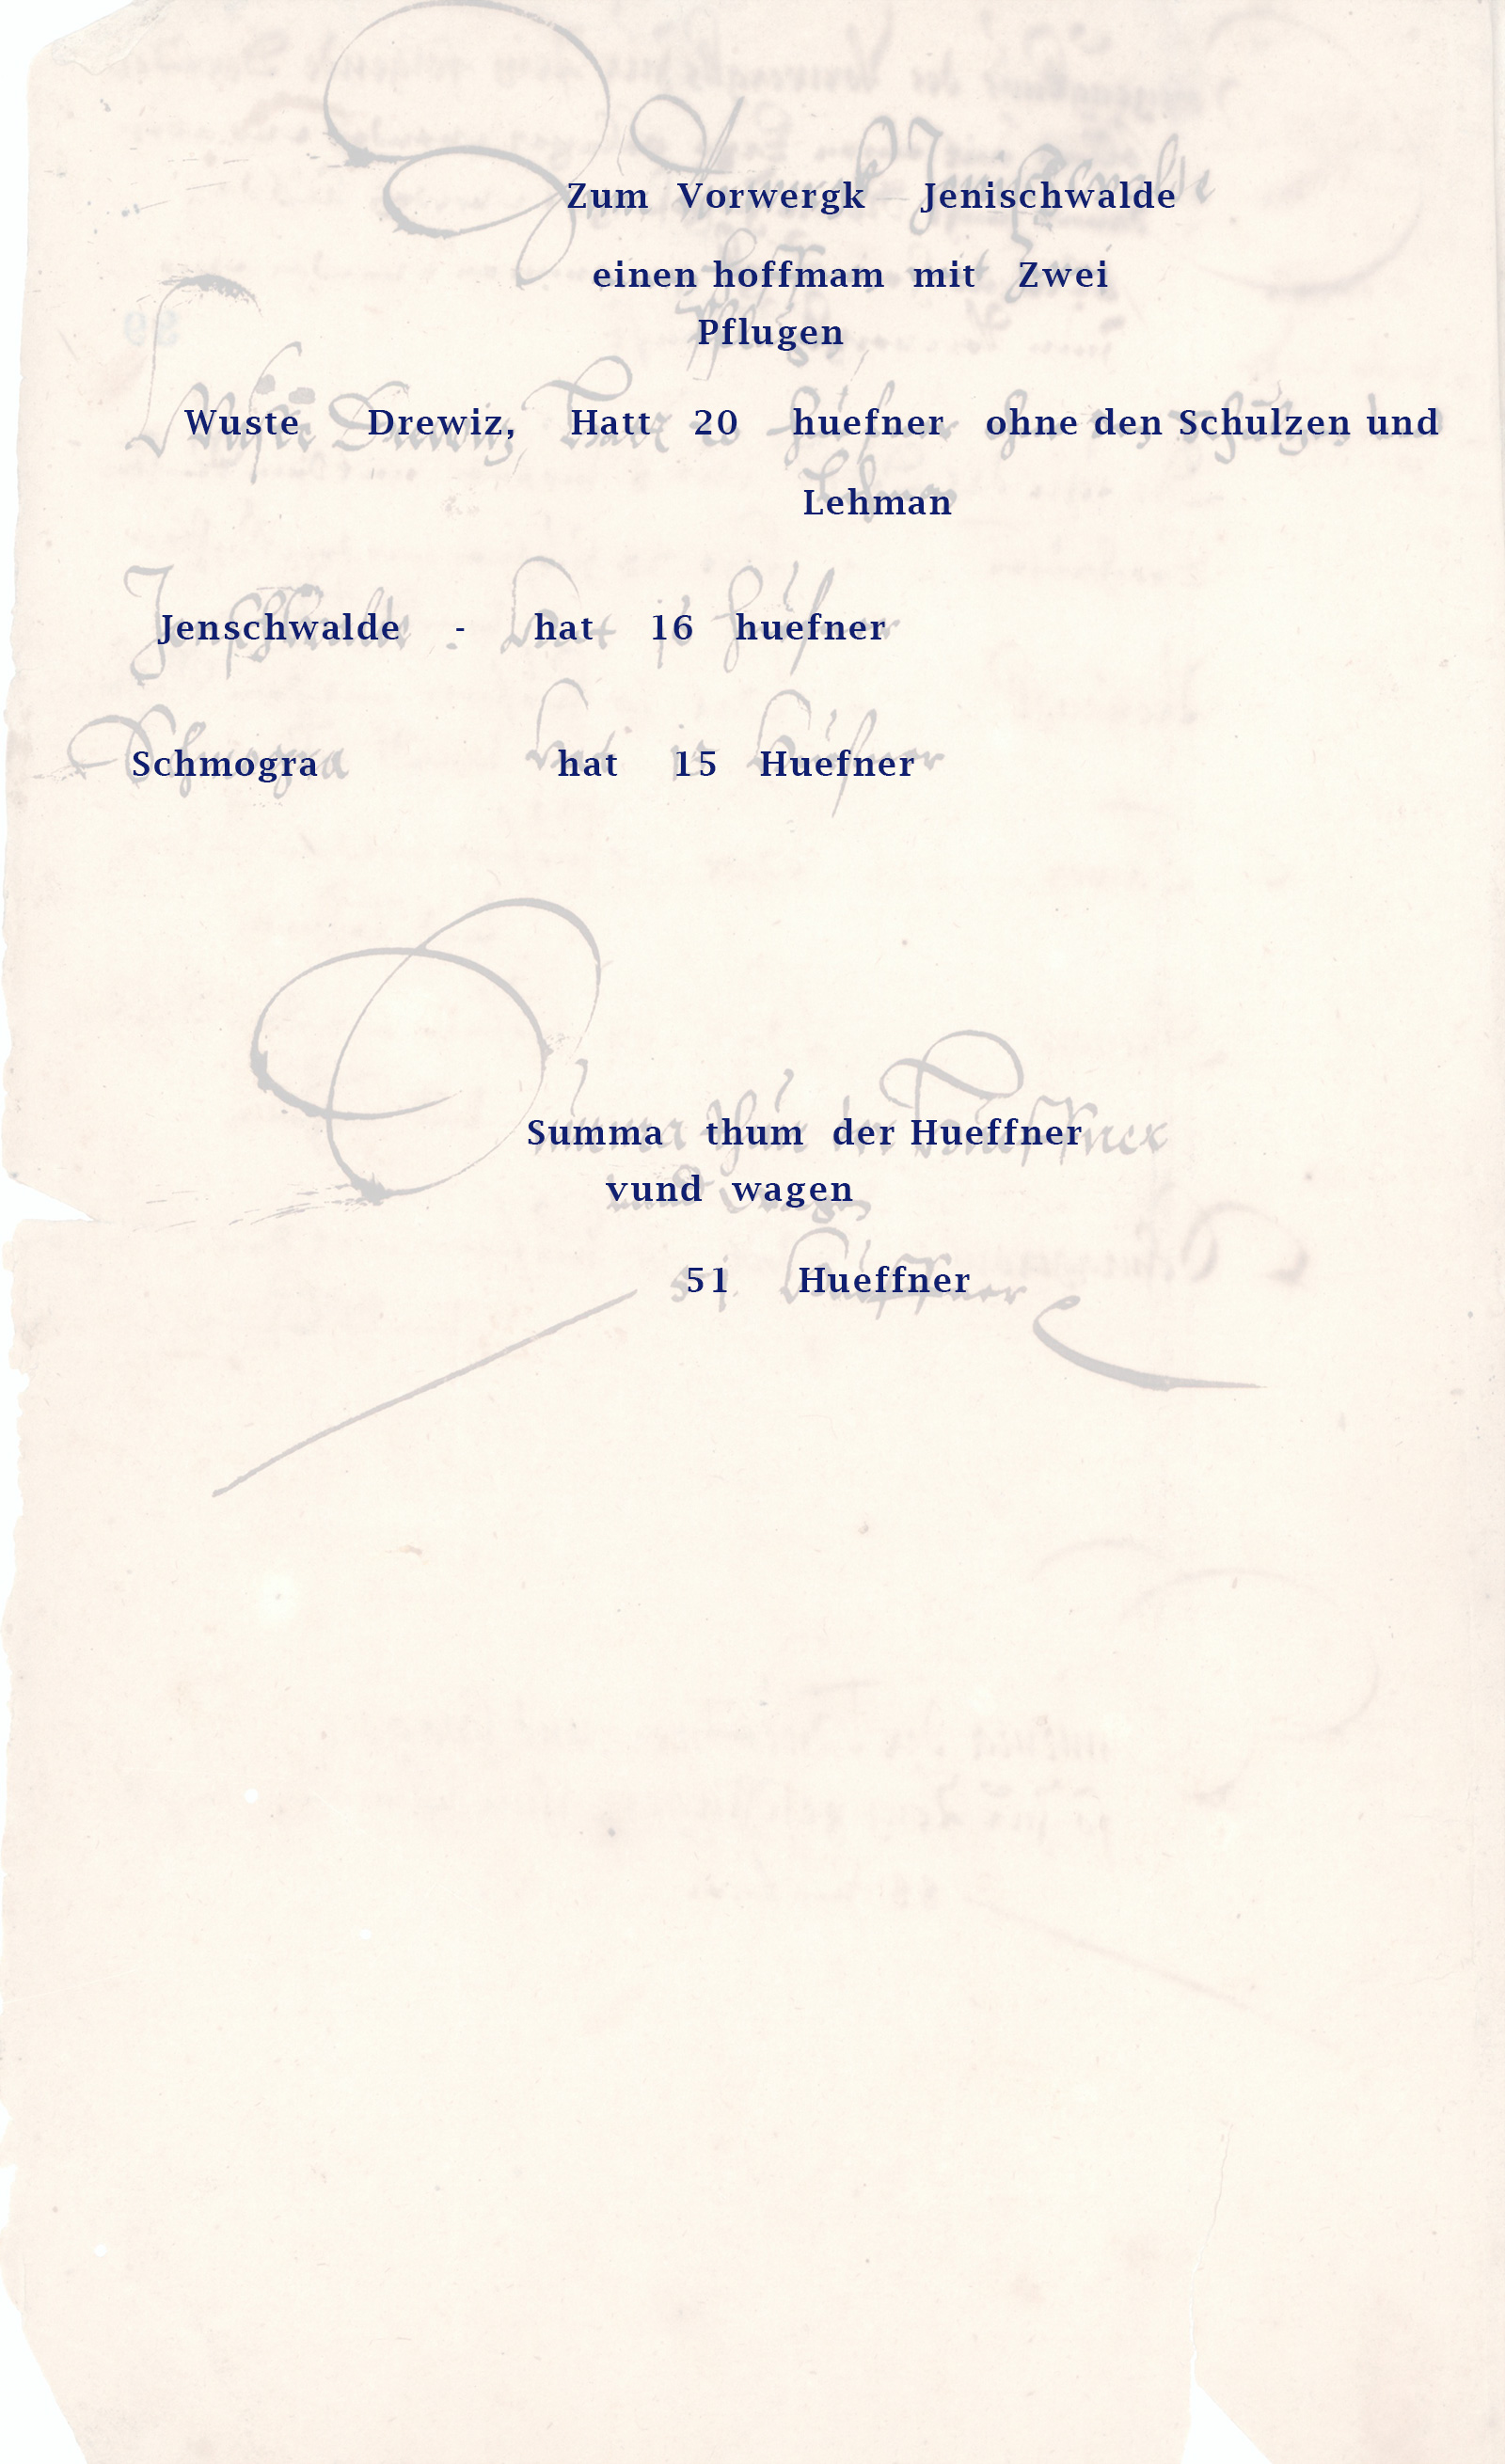 Zum Vorwergk Jenischwalde
einen hoffmam mit Zwei
Pflugen
Wuste Drewiz, Hatt 20 huefner ohne den Schulzen und
Lehman
Jenschwalde - hat 16 huefner
Schmogra hat 15 Huefner
Summa thum der Hueffner
vund wagen
51 Hueffner